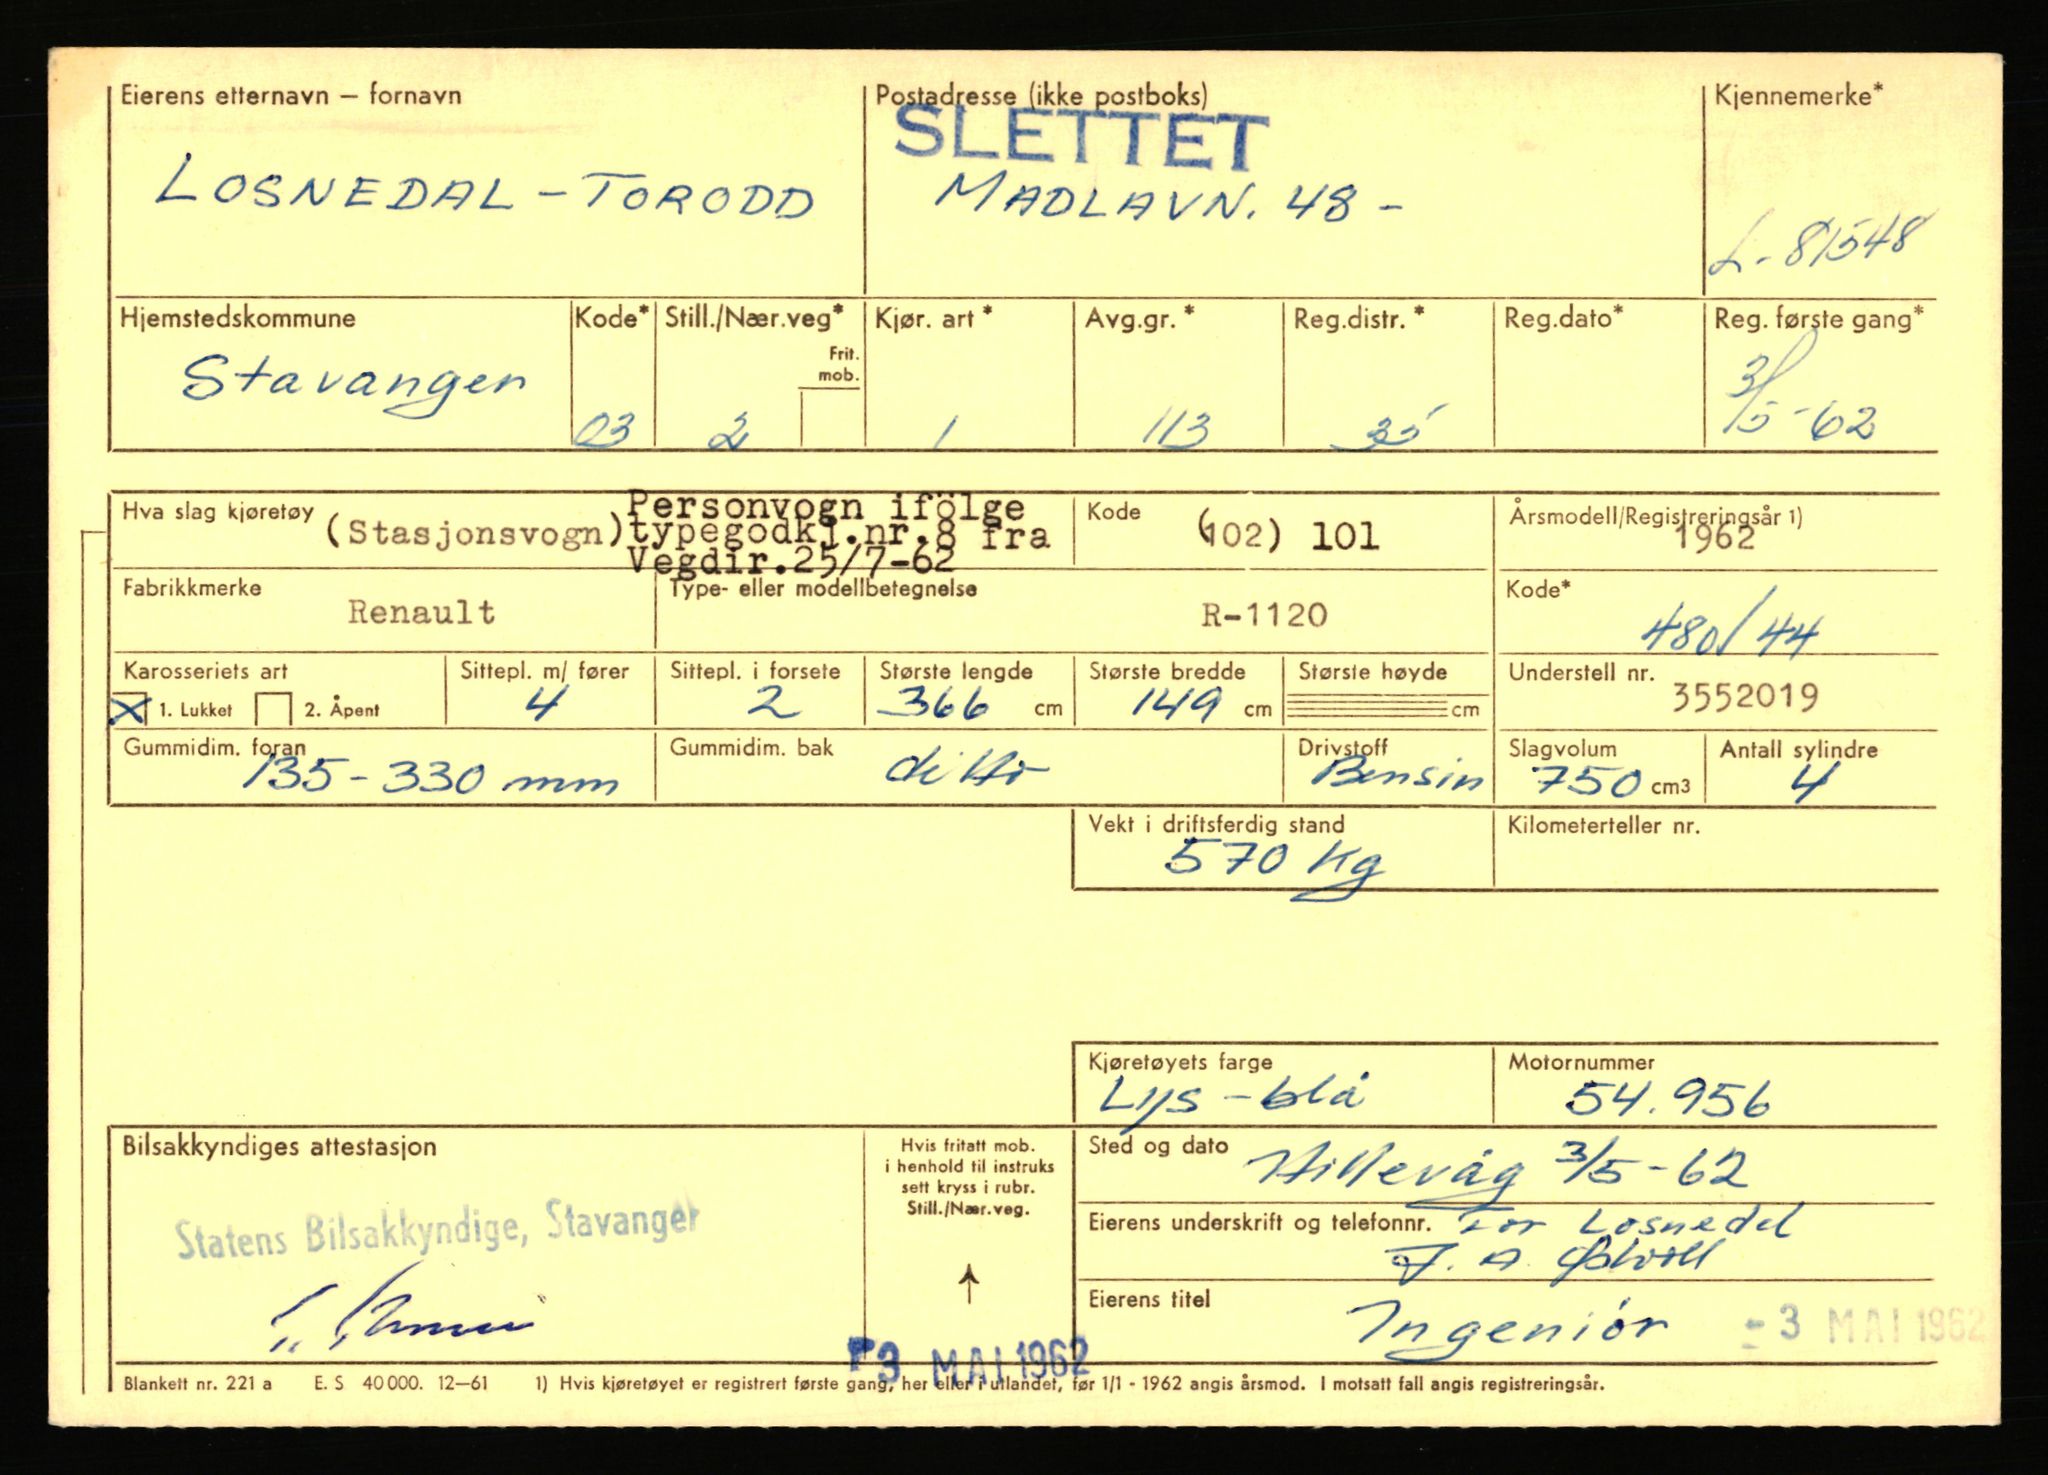 Eierens etternavn – fornavn Postadresse (ikke postboks) Kjennemerke*
SLETTET
LOSNEDAL - TORODD MADLAVN. 48 -
L-81548
Hjemstedskommune Kode* Still./Nær.veg* Kjør. art* Avg.gr.* Reg.distr.* Reg.dato* Reg. første gang*
Frit.
mob.
Stavanger 03 2 1 113 35 3/5-62
Hva slag kjøretøy (Stasjonsvogn) Personvogn ifölge
typegodkj.nr.8 fra
Vegdir.25/7-62
Kode (102) 101 Årsmodell/Registreringsår 1)
1962
Fabrikkmerke Type- eller modellbetegnelse Kode*
Renault R-1120 480/44
Karosseriets art Sittepl. m/ fører Sittepl. i forsete Største lengde Største bredde Største høyde Understell nr.
X 1. Lukket 2. Åpent 4 2 366 cm 149 cm cm 3552019
Gummidim. foran Gummidim. bak Drivstoff Slagvolum Antall sylindre
135-330 mm ditto Bensin 750 cm3 4
Vekt i driftsferdig stand Kilometerteller nr.
570 kg
Kjøretøyets farge Motornummer
Lys-blå 54.956
Bilsakkyndiges attestasjon
Statens Bilsakkyndige, Stavanger
Hvis fritatt mob.
i henhold til instruks
sett kryss i rubr.
Still./Nær.veg.
Sted og dato Hillevåg 3/5-62
Eierens underskrift og telefonnr. Tor Losnedal
Eierens titel Ingeniør -3 MAI 1962
-3 MAI 1962
Blankett nr. 221 a E. S 40 000. 12–61 1) Hvis kjøretøyet er registrert første gang, her eller i utlandet, før 1/1 - 1962 angis årsmod. I motsatt fall angis registreringsår.